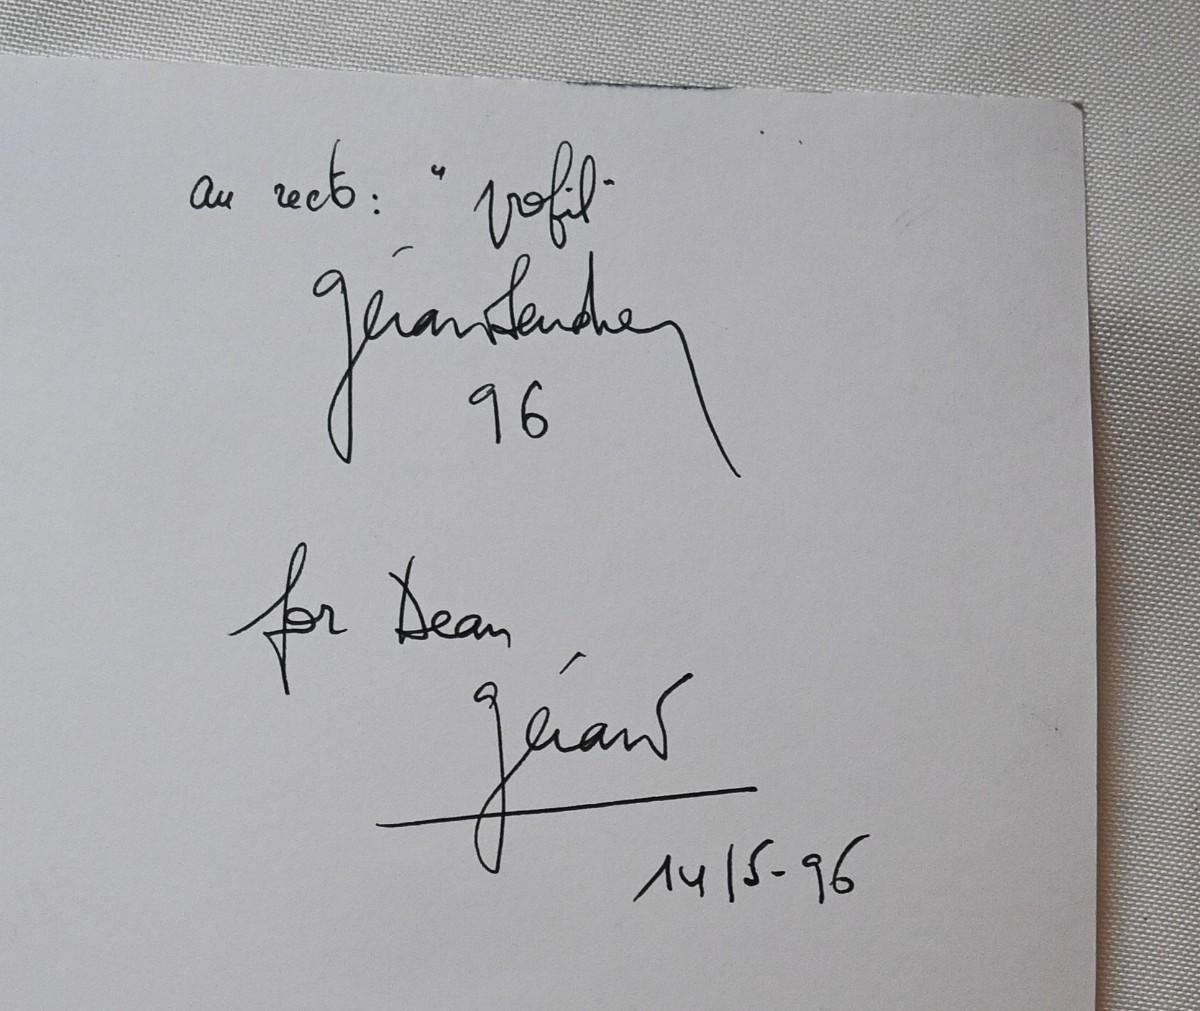 au recto: "profil"
Gérard
96
for Dean
Gérard
14/5-96